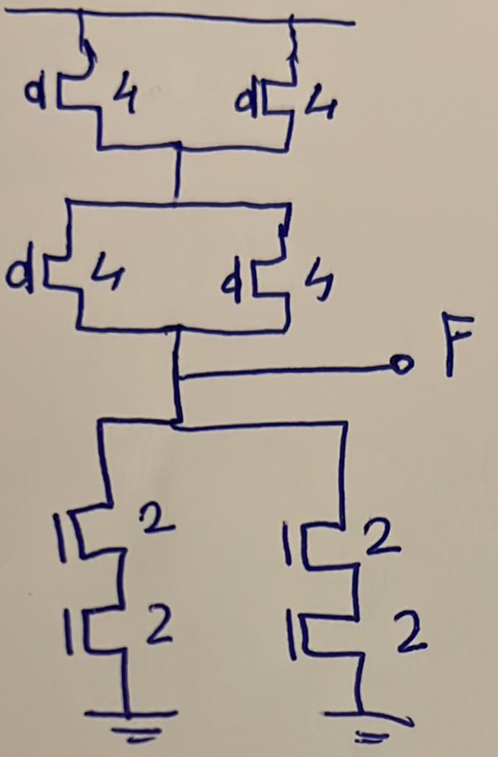 4 4
4 4
F
2 2
2 2